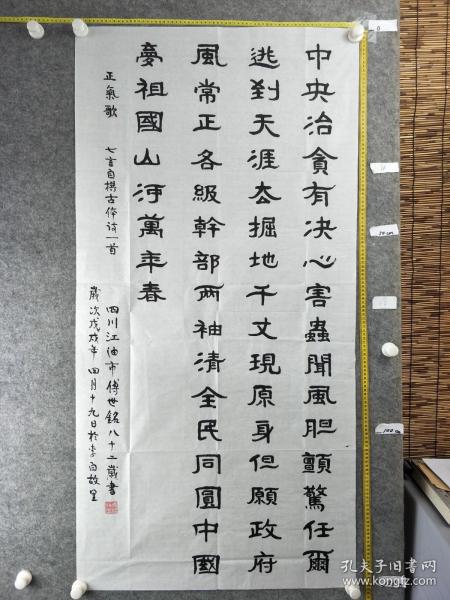 中央治貪有决心害蟲聞風胆顫驚任爾
逃到天涯去掘地千丈現原身但願政府
風常正各級幹部兩袖清全民同圓中國
夢祖國山河萬年春
正氣歌 七言自撰古体诗一首
四川江油市傅世銘八十二歲書
歲次戊戌年四月十九日於李白故里
孔夫子旧书网
kongfz.com